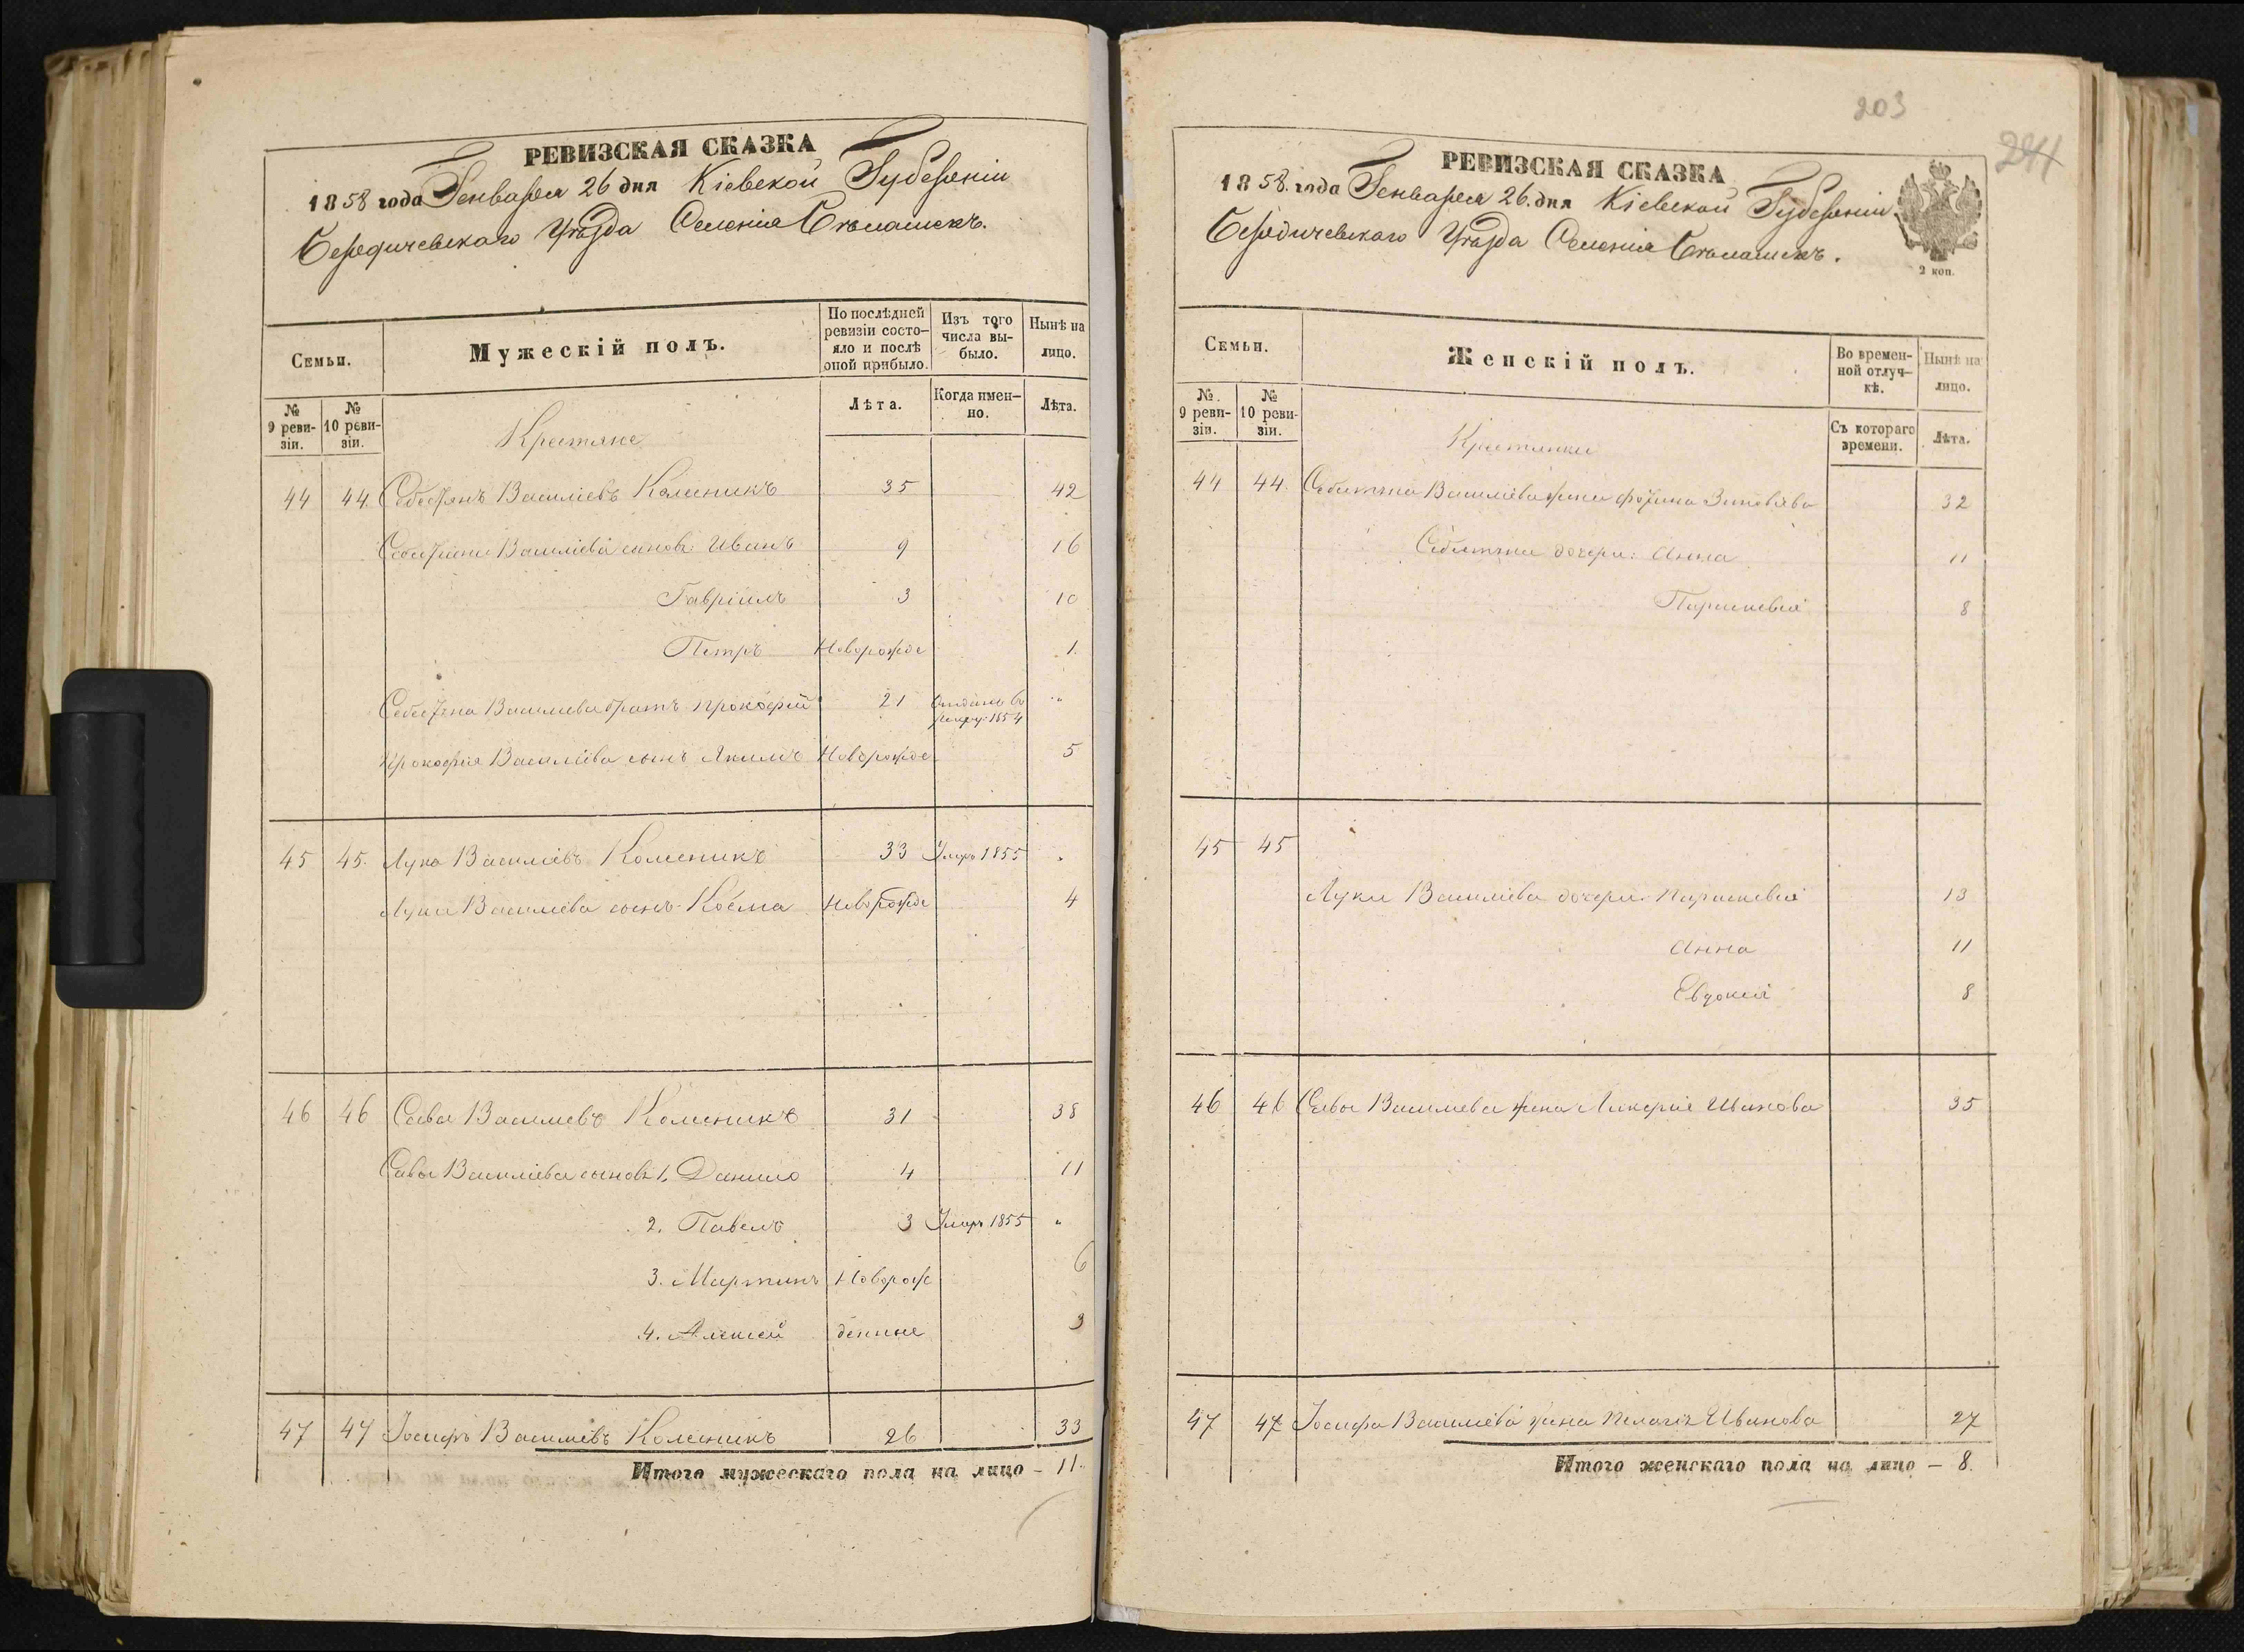 РЕВИЗСКАЯ СКАЗКА
1858 года Генваря 26 дня Кіевской Губерніи
Бердичевскаго Уѣзда Селенія
Семьи.
Мужескій полъ.
По послѣдней ревизіи состояло и послѣ оной прибыло.
Изъ того числа выбыло.
Нынѣ на лицо.
№ 9 ревизіи.
№ 10 ревизіи.
Лѣта.
Когда именно.
Лѣта.
Крестяне
44 44. Василіевъ Колисникъ 35 42
Василіева синов: Иванъ 9 16
Гавріилъ 3 10
Петръ Новорожде 1.
Василиева братъ Прокофій 21 Отданъ в рекру. 1854 "
Прокофія Василіева сынъ Якимъ Новорожде 5
45 45. Лука Василіевъ Колисникъ 33 Умеръ 1855 "
Луки Василиева сынъ Косма Новорожде 4
46 46 Сава Василиевъ Колисникъ 31 38
Савы Василіева сынов: 1. Данило 4 11
2. Павелъ 3 Умеръ 1855 "
3. Мартинъ Новорож 6
4. Алексей денные 3
47 47 Іосифъ Василиевъ Колисникъ 26 33
Итого мужескаго пола на лицо – 11.
203
241
РЕВИЗСКАЯ СКАЗКА
1858. года Генваря 26. дня Кіевской Губерніи
Бердичевскаго Уѣзда Селенія
2 коп.
Семьи.
Женскій полъ.
Во временной отлучкѣ.
Нынѣ на лицо.
№ 9 ревизіи.
№ 10 ревизіи.
Съ котораго времени.
Лѣта.
Крестянки
44 44. Василіева жена Зиновіева 32
дочери: Анна 11
Параскевія 8
45 45
Луки Василіева дочери: Параскевія 13
Анна 11
Евдокія 8
46 46 Савы Василиева жена Ликерія Иванова 35
47 47 Іосифа Василиева жена Пелагія Иванова 27
Итого женскаго пола на лицо – 8.